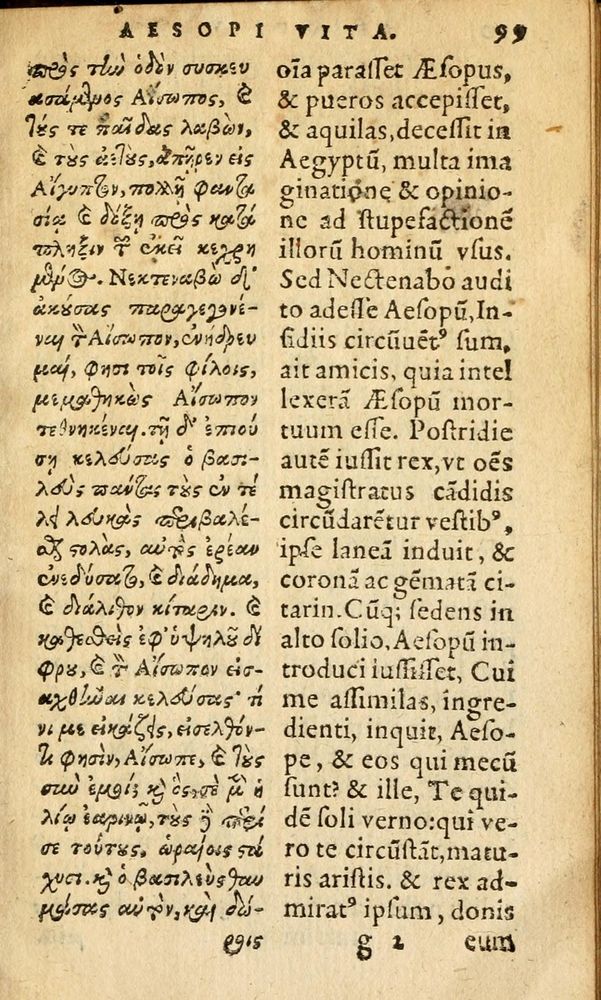 AESOPI VITA. 99
πρὸς τὴν ὁδὸν συσκευ
ασάμενος Αἴσωπος, καὶ
τούς τε παῖδας λαβὼν,
καὶ τοὺς ἀετοὺς, ἀπῆρεν εἰς
Αἴγυπτον, πολλῇ φαντα
σίᾳ καὶ δόξῃ πρὸς κατά
πληξιν τῶν ἐκεῖ κεχρη
μένος. Νεκτεναβὼ δ'
ἀκούσας παραγεγονέ-
ναι τὸν Αἴσωπον, ἐνήδρευ
μαι, φησὶ τοῖς φίλοις,
μεμαθηκὼς Αἴσωπον
τεθνηκέναι. τῇ δ' ἐπιού
σῃ κελεύσας ὁ βασι-
λεὺς πάντας τοὺς ἐν τέ
λει λευκὰς περιβαλέ-
σθαι στολὰς, αὐτὸς ἐρέαν
ἐνεδύσατο, καὶ διάδημα,
καὶ διάλιθον κίταριν. καὶ
καθεσθεὶς ἐφ' ὑψηλοῦ δί
φρου, καὶ τὸν Αἴσωπον εἰσ-
αχθῆναι κελεύσας· τί
νι με εἰκάζεις, εἰσελθόν-
τι φησὶν, Αἴσωπε, καὶ τοὺς
σὺν ἐμοί; καὶ ὃς, σὲ μὲν ἡ
λίῳ ἐαρινῷ, τοὺς δὲ περί
σε τούτους, ὡραίοις στά
χυσι. καὶ ὁ βασιλεὺς θαυ
μάσας αὐτὸν, καὶ δώ-
ροις
oīa parasset Æsopus,
& pueros accepisset,
& aquilas, decessit in
Aegyptū, multa ima
ginatione & opinio-
ne ad stupefactionē
illorū hominū vsus.
Sed Nectenabo audi
to adesse Aesopū, In-
sidiis circūuētꝰ sum,
ait amicis, quia intel
lexerā Æsopū mor-
tuum esse. Postridie
autē iussit rex, vt oēs
magistratus cādidis
circūdarētur vestibꝰ,
ipse laneā induit, &
coronā ac gēmatā ci-
tarin. Cūq; sedens in
alto solio, Aesopū in-
troduci iussisset, Cui
me assimilas, ingre-
dienti, inquit, Aeso-
pe, & eos qui mecū
sunt? & ille, Te qui-
dē soli verno: qui ve-
ro te circūstāt, matu-
ris aristis. & rex ad-
miratꝰ ipsum, donis
g 2 eum